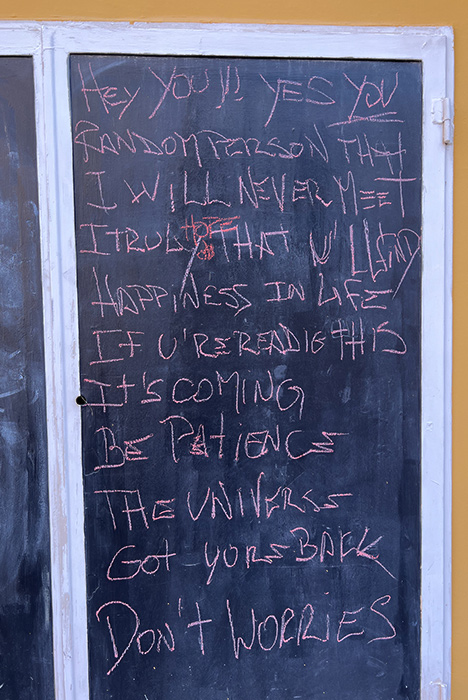 HEY YOU!!! YES YOU
RANDOM PERSON THAT
I WILL NEVER MEET
I TRULY HOPE THAT U'LL FIND
HAPPINESS IN LIFE
IF U'RE READIG THIS
IT'S COMING
BE PATIENCE
THE UNIVERSE
GOT YORS BACK
DON'T WORRIES